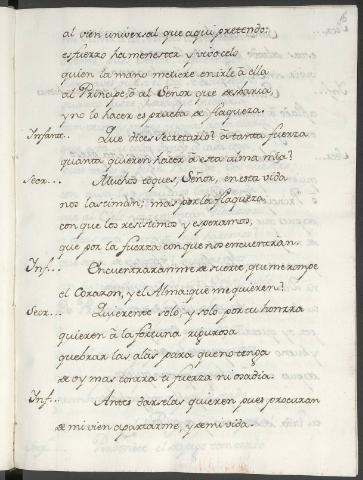 al vien universal que aqui pretendo:
esfuerzo ha menester y vivo celo
quien la mano metiere en irle â ella
al Principe, ô al Señor que se havia,
y no lo hacer es prueba de flaqueza.
Infante.. Que dices Secretario? â tanta fuerza
quanta quieren hacer â esta alma mia?
Secr... Muchos toques, Señor, en esta vida
nos lastiman; mas por la flaqueza
con que los resistimos y esperamos,
que por la fuerza con que nos encuentran.
Inf... Encuentraranme de suerte, que me rompe
el Corazon, y el Alma: que me quieren?
Secr... Quierente solo, y solo por tu honrra
quieren â la fortuna rigurosa
quebrar las alas para que no tenga
de oy mas contra ti fuerza ni osadia.
Inf... Antes darselas quieren pues procuran
de mi vien apartarme, y de mi vida.